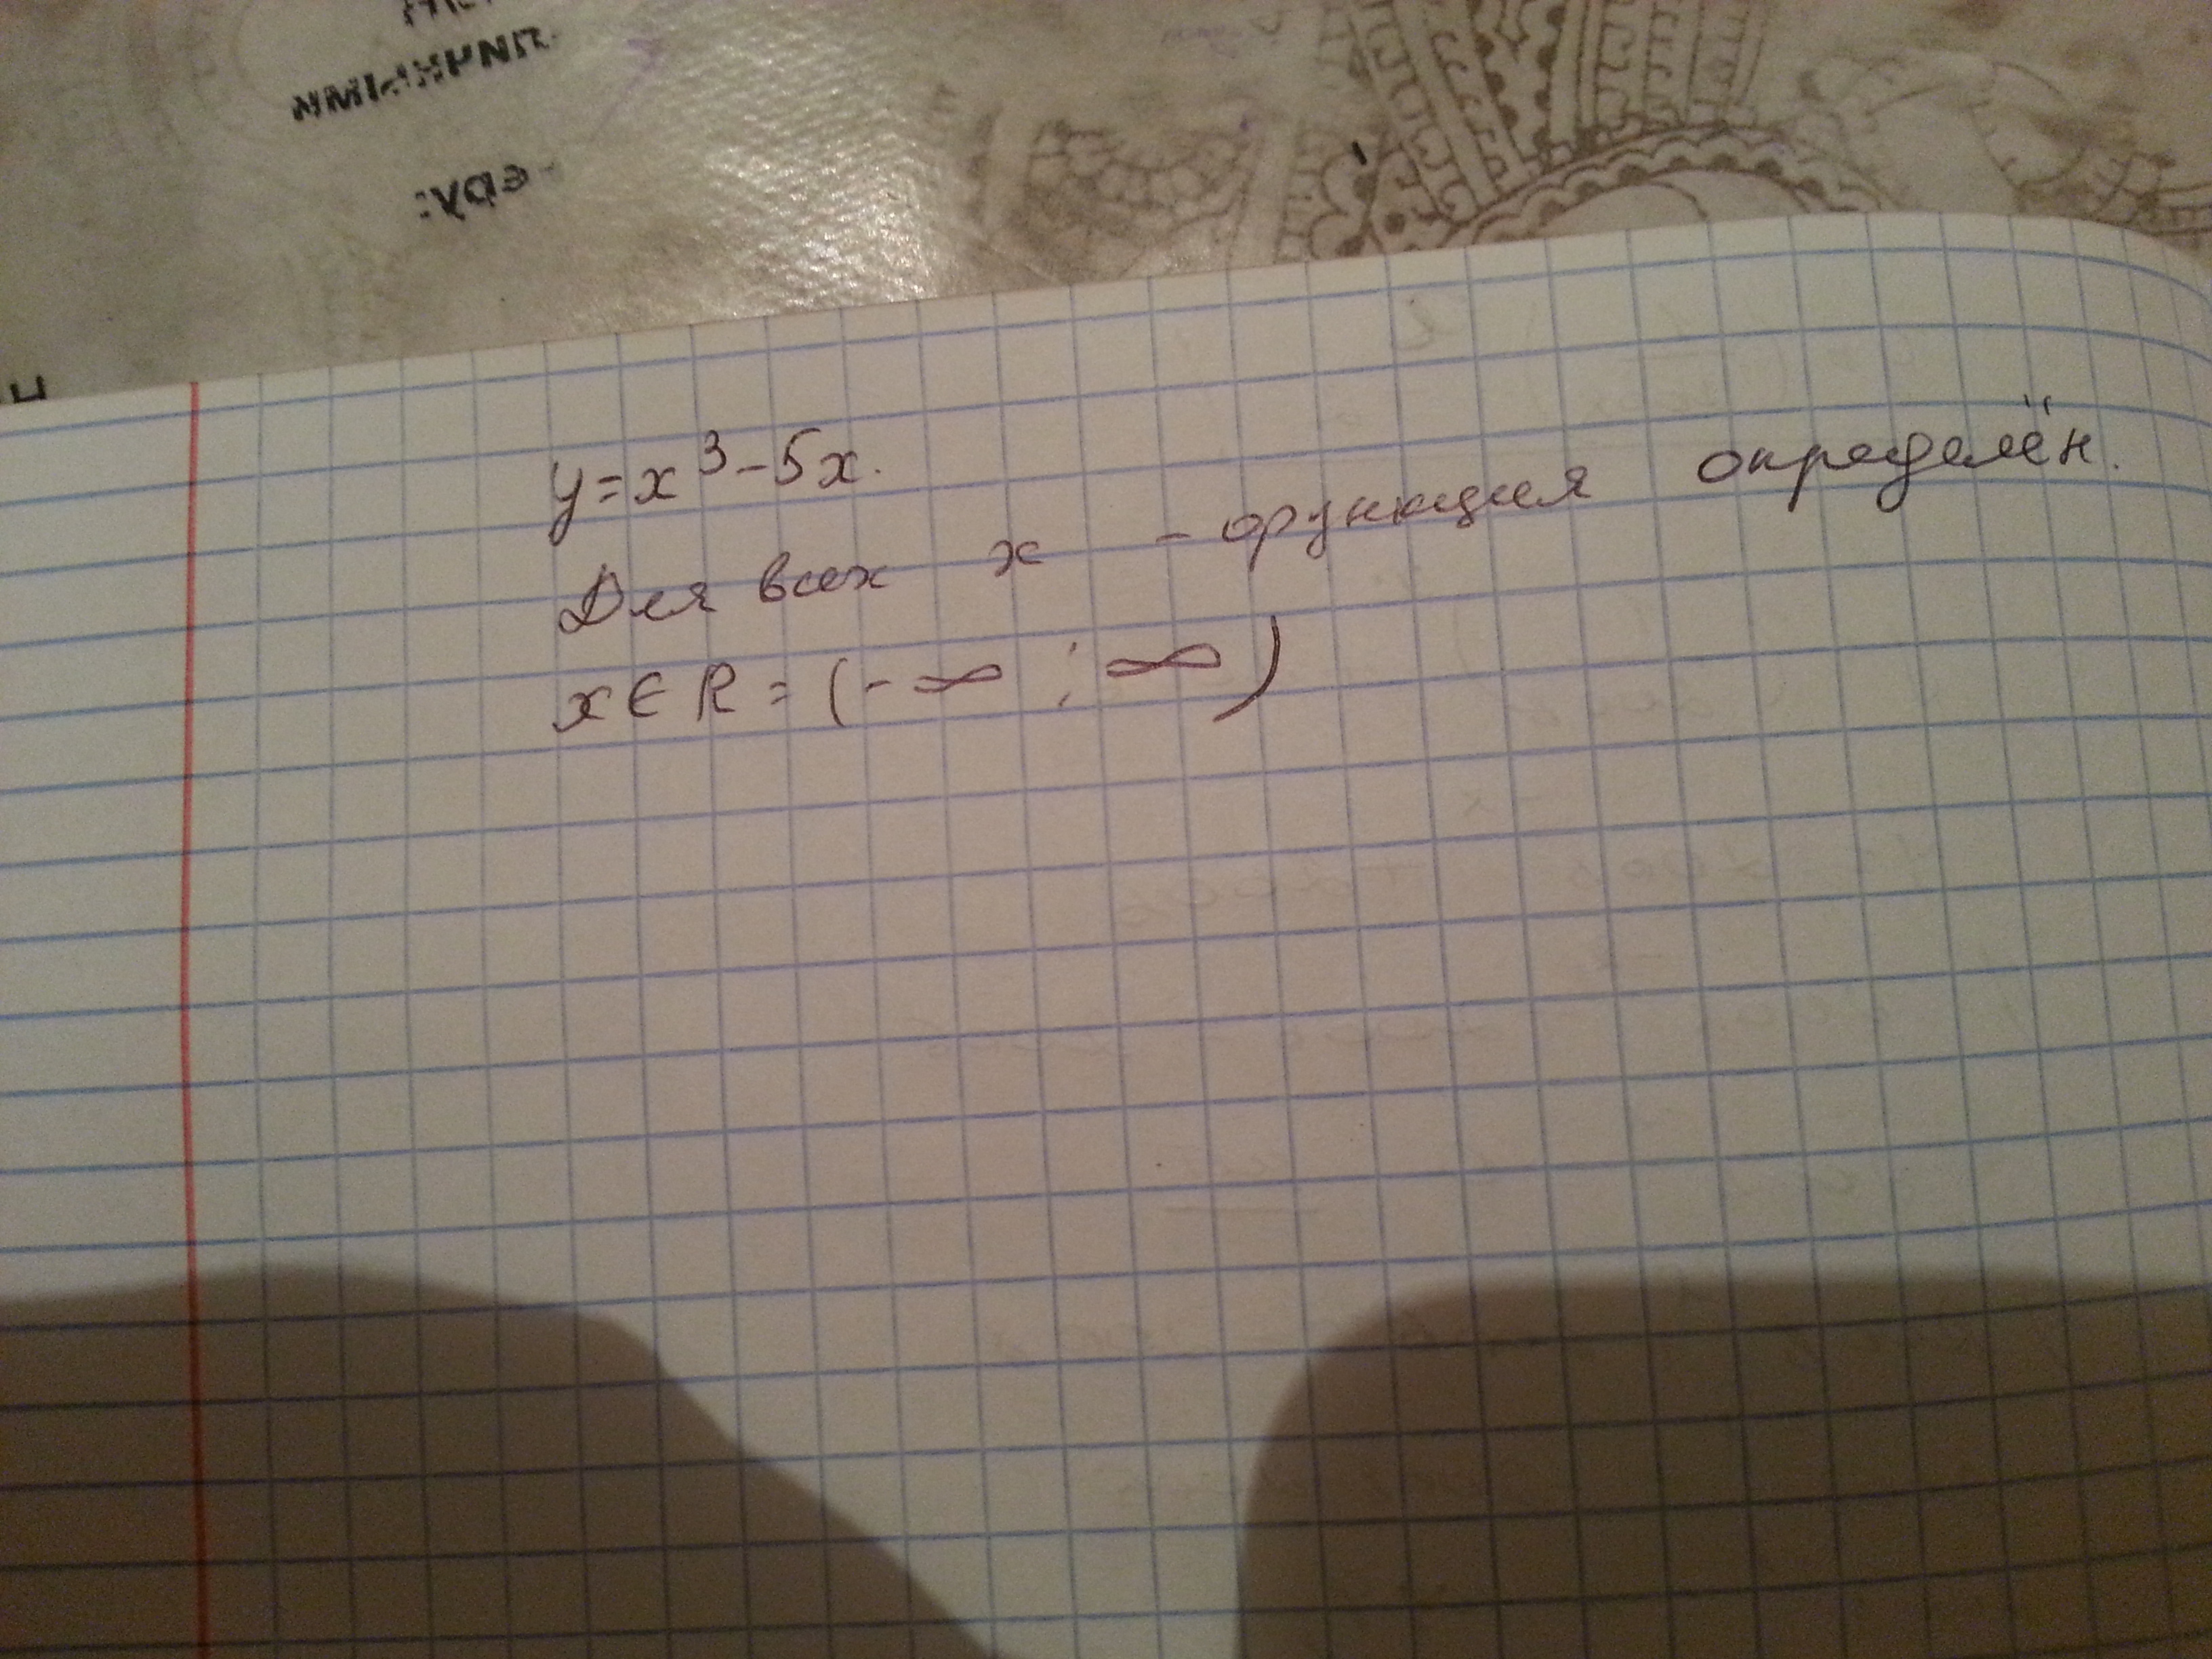 y=x³-5x.
Для всех x - функция определён.
x∈R=(-∞;∞)